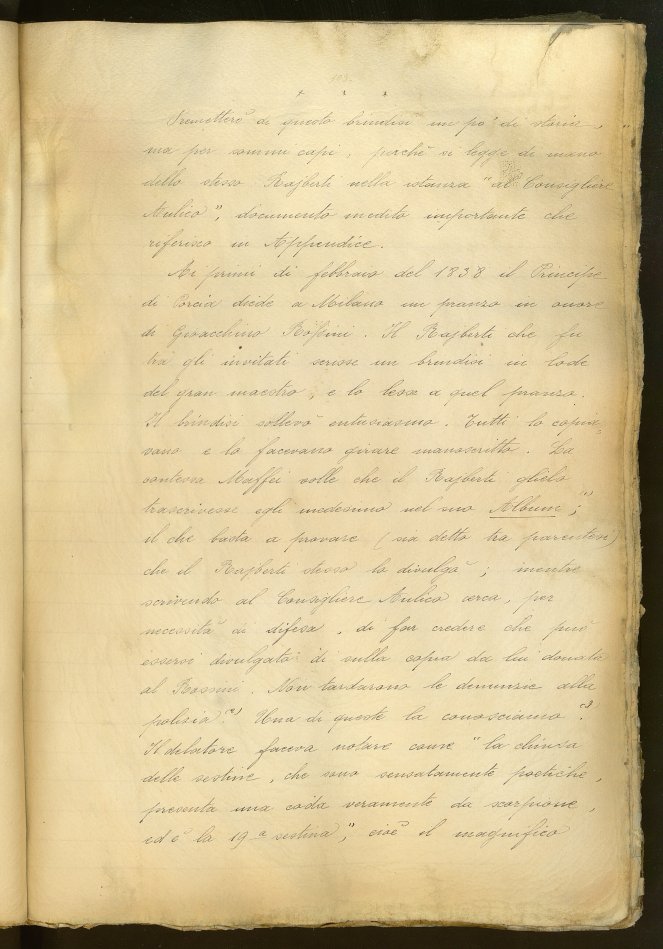 103.
x x x
Premetterò di questo brindisi un po' di storia,
ma per sommi capi, perchè si legge di mano
dello stesso Rajberti nella istanza "al Consigliere
Aulico", documento inedito importante che
riferisco in Appendice.
Ai primi di febbraio del 1838 il Principe
di Porcia diede a Milano un pranzo in onore
di Gioacchino Rossini. Il Rajberti che fu
tra gli invitati scrisse un brindisi in lode
del gran maestro, e lo lesse a quel pranzo.
Il brindisi sollevò entusiasmo. Tutti lo copia-
vano e lo facevano girare manoscritto. La
contessa Maffei volle che il Rajberti glielo
trascrivesse egli medesimo nel suo Album;
il che basta a provare (sia detto tra parentesi)
che il Rajberti stesso lo divulgò; mentre
scrivendo al Consigliere Aulico cerca, per
necessità di difesa, di far credere che può
essersi divulgato di sulla copia da lui donata
al Rossini. Non tardarono le denunzie alla
polizia.(2) Una di queste la conosciamo.
Il delatore faceva notare come "la chiusa
delle sestine, che sono sensatamente poetiche,
presenta una coda veramente da scorpione,
ed è la 19a sestina", cioè il magnifico